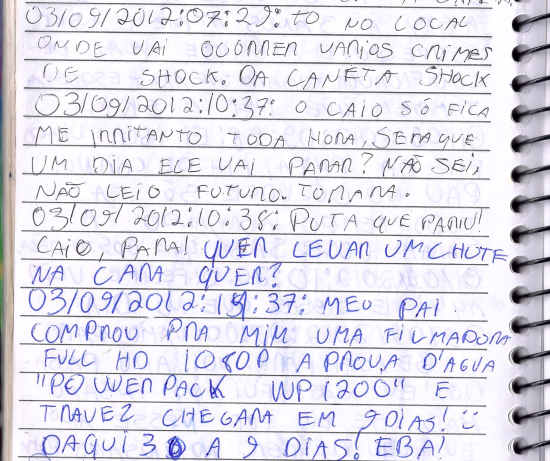 03/09/2012:07:29: TO NO LOCAL
ONDE VAI OCORRER VARIOS CRIMES
DE SHOCK. DA CANETA SHOCK
03/09/2012:10:37: O CAIO SÓ FICA
ME IRRITANTO TODA HORA, SERA QUE
UM DIA ELE VAI PARAR? NÃO SEI,
NÃO LEIO FUTURO. TOMARA.
03/09/2012:10:38: PUTA QUE PARIU!
CAIO, PARA! QUER LEVAR UM CHUTE
NA CARA QUER?
03/09/2012:19:37: MEU PAI
COMPROU PRA MIM UMA FILMADORA
FULL HD 1080P A PROVA D'AGUA
"POWER PACK WP1200" E
TAVEZ CHEGARA EM 9 DIAS! :)
DAQUI 30 A 9 DIAS! EBA!